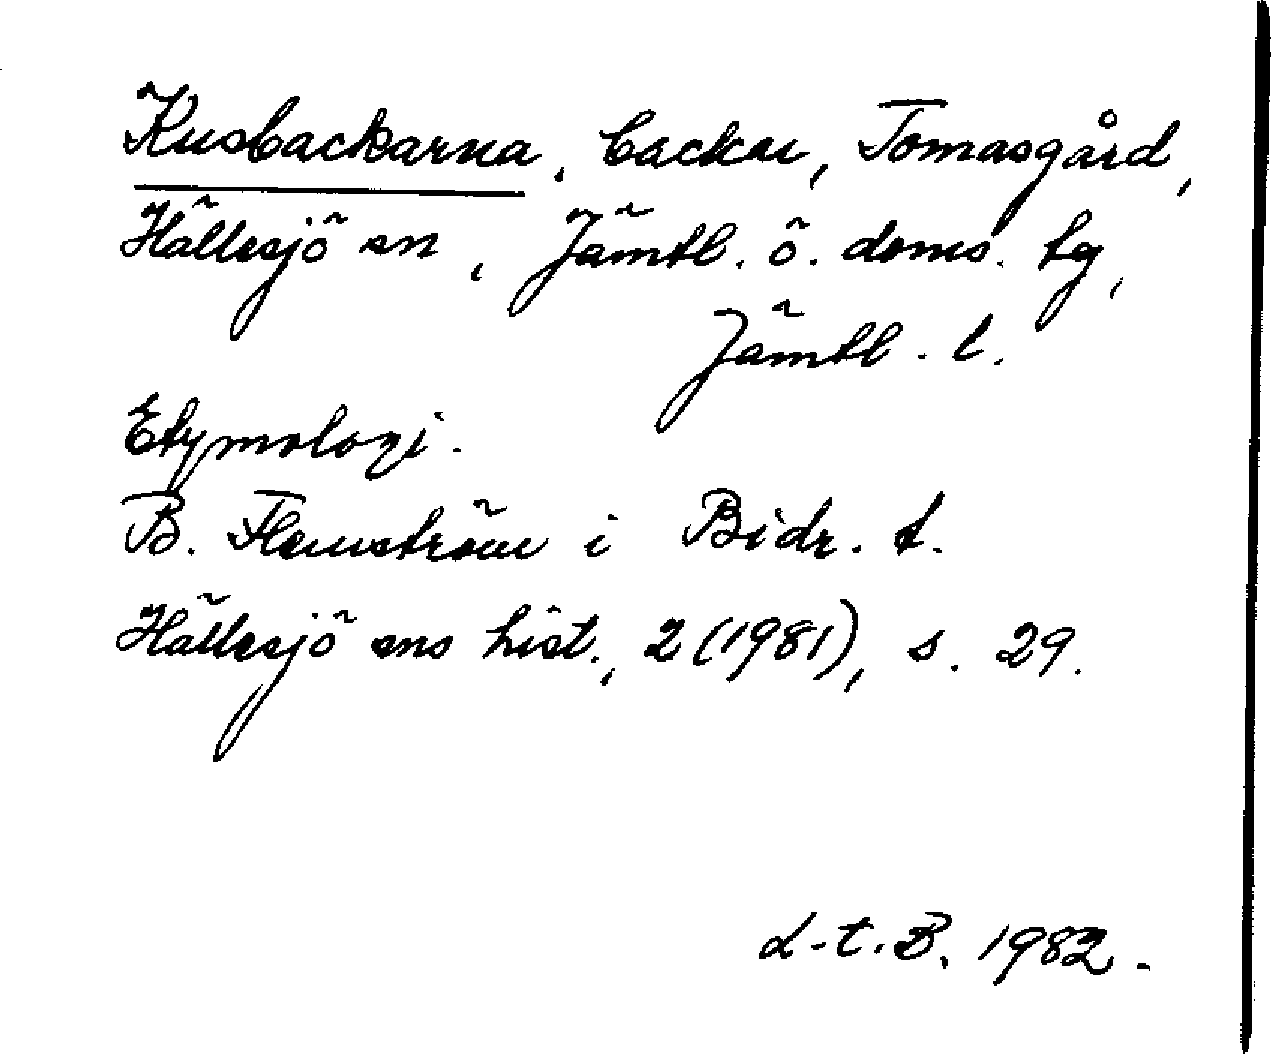 Kusbackarna, backar, Tomasgård,
Hällesjö sn, Jämtl. ö. doms. tg,
Jämtl. l.
Etymologi.
B. Flemström i Bidr. t.
Hällesjö sns hist., 2 (1981), s. 29.
L-t. B. 1982.